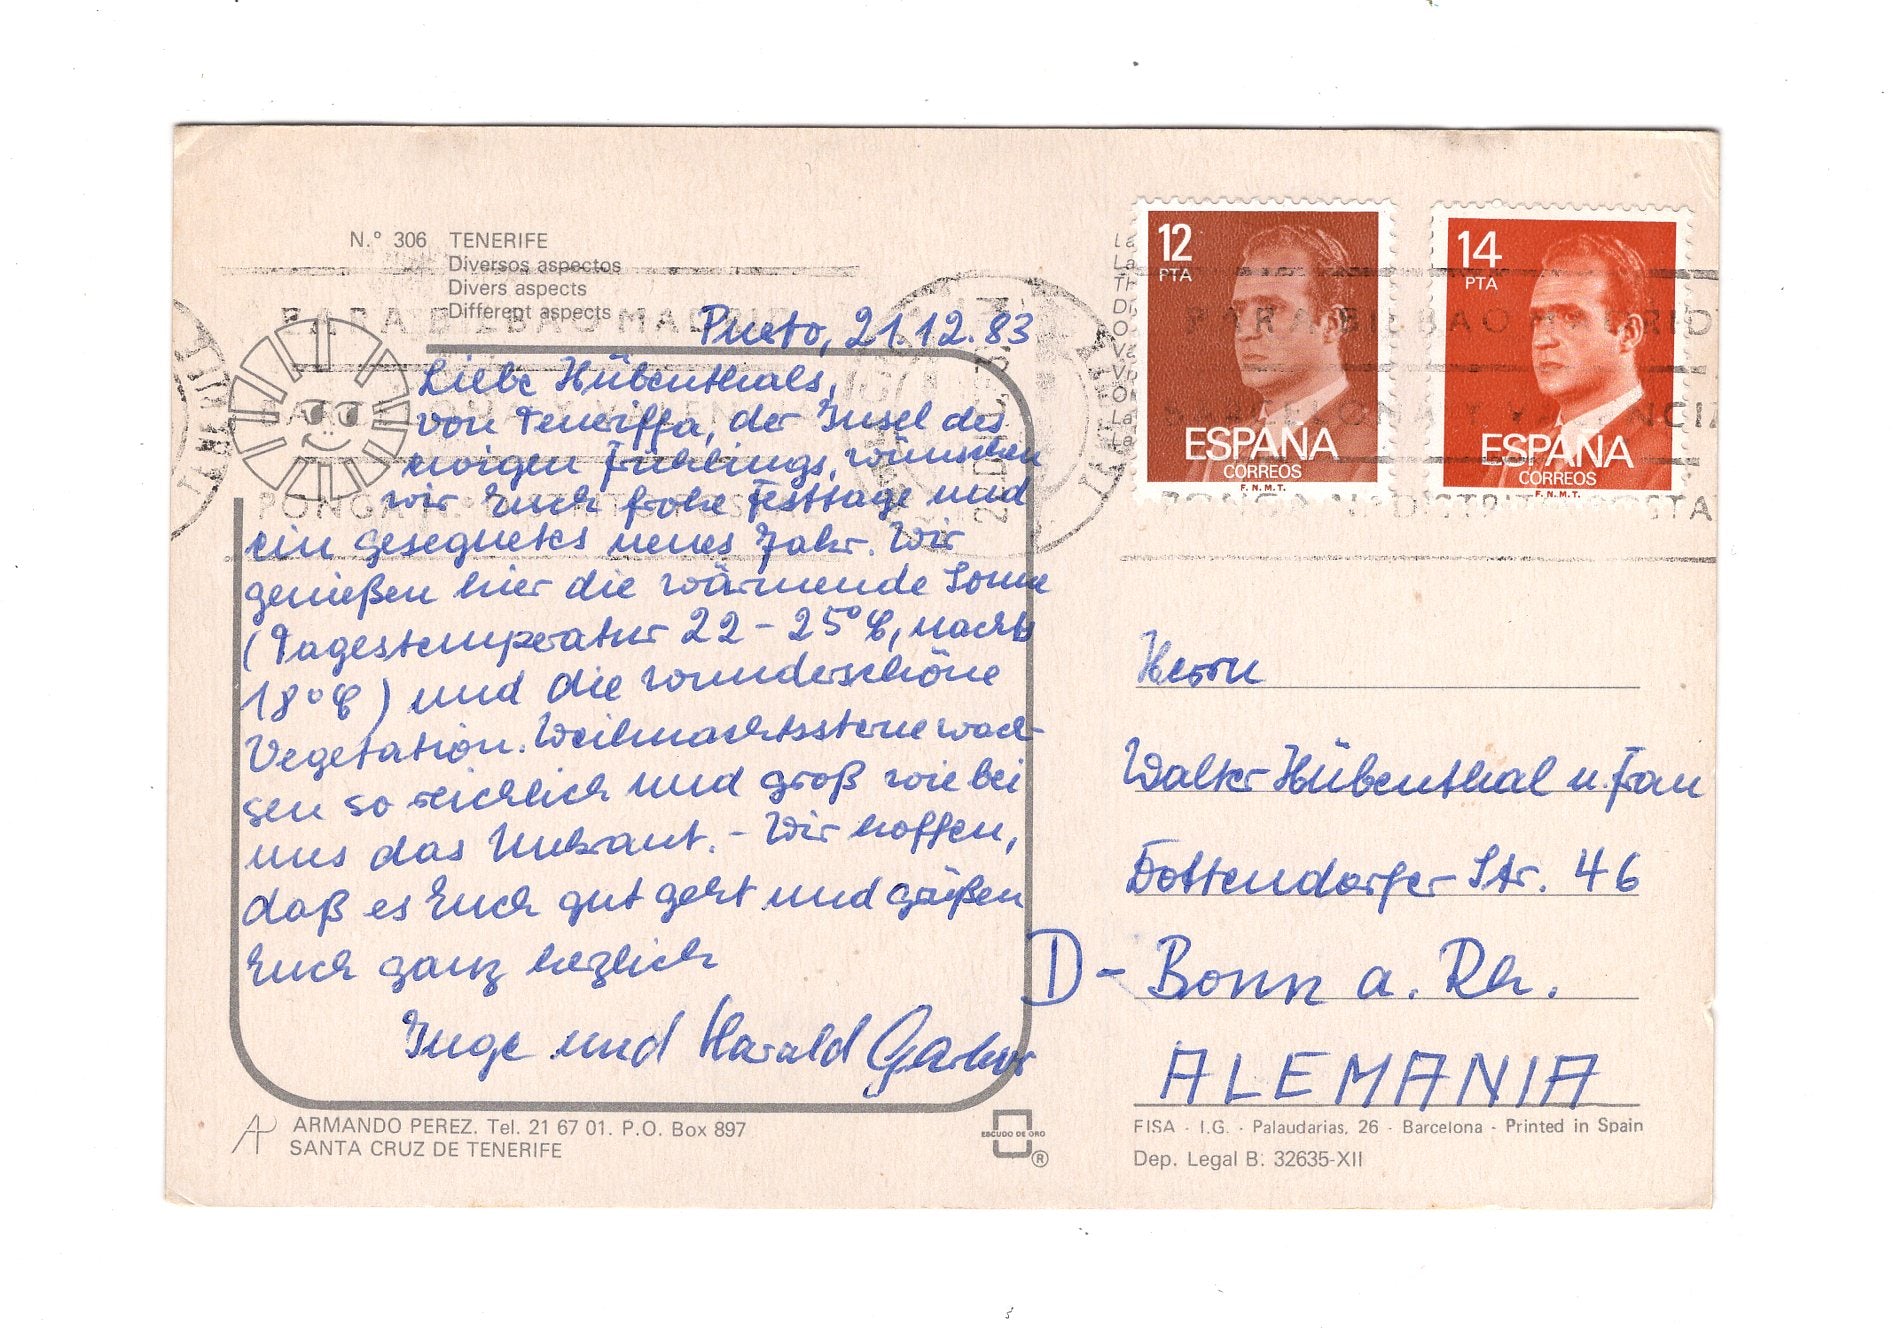 N.º 306 TENERIFE
Diversos aspectos
Divers aspects
Different aspects
PARA BILBAO MADRID
PONGA
Puerto, 21.12.83
Liebe Hübenthals,
von Teneriffa, der Insel des
ewigen Frühlings, wünschen
wir Euch frohe Festtage und
ein gesegnetes neues Jahr. Wir
genießen hier die wärmende Sonne
(Tagestemperatur 22-25°C, nachts
18°C) und die wunderschöne
Vegetation. Weihnachtssterne wach-
sen so reichlich und groß wie bei
uns das Unkraut. - Wir hoffen,
daß es Euch gut geht und grüßen
Euch ganz herzlich
Inge und Harald
ARMANDO PEREZ. Tel. 21 67 01. P.O. Box 897
SANTA CRUZ DE TENERIFE
ESCUDO DE ORO
®
12
PTA
ESPAÑA
CORREOS
F.N.M.T.
14
PTA
ESPAÑA
CORREOS
F.N.M.T.
PARA BILBAO MADRID
BARCELONA Y VALENCIA
PONGA Nº DISTRITO POSTAL
Herrn
Walter Hübenthal u. Frau
Dottendorfer Str. 46
D- Bonn a. Rh.
ALEMANIA
FISA - I.G. - Palaudarias, 26 - Barcelona - Printed in Spain
Dep. Legal B. 32635-XII